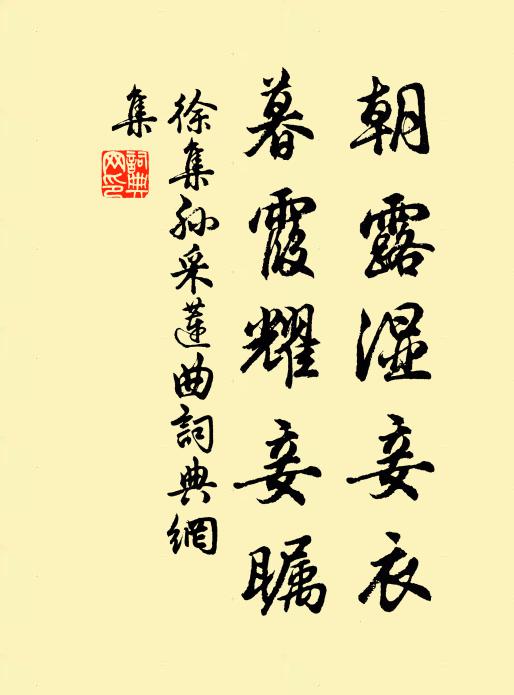 朝露湿妾衣
暮霞耀妾瞩
徐集孙采莲曲詞典網
集
詞典網印